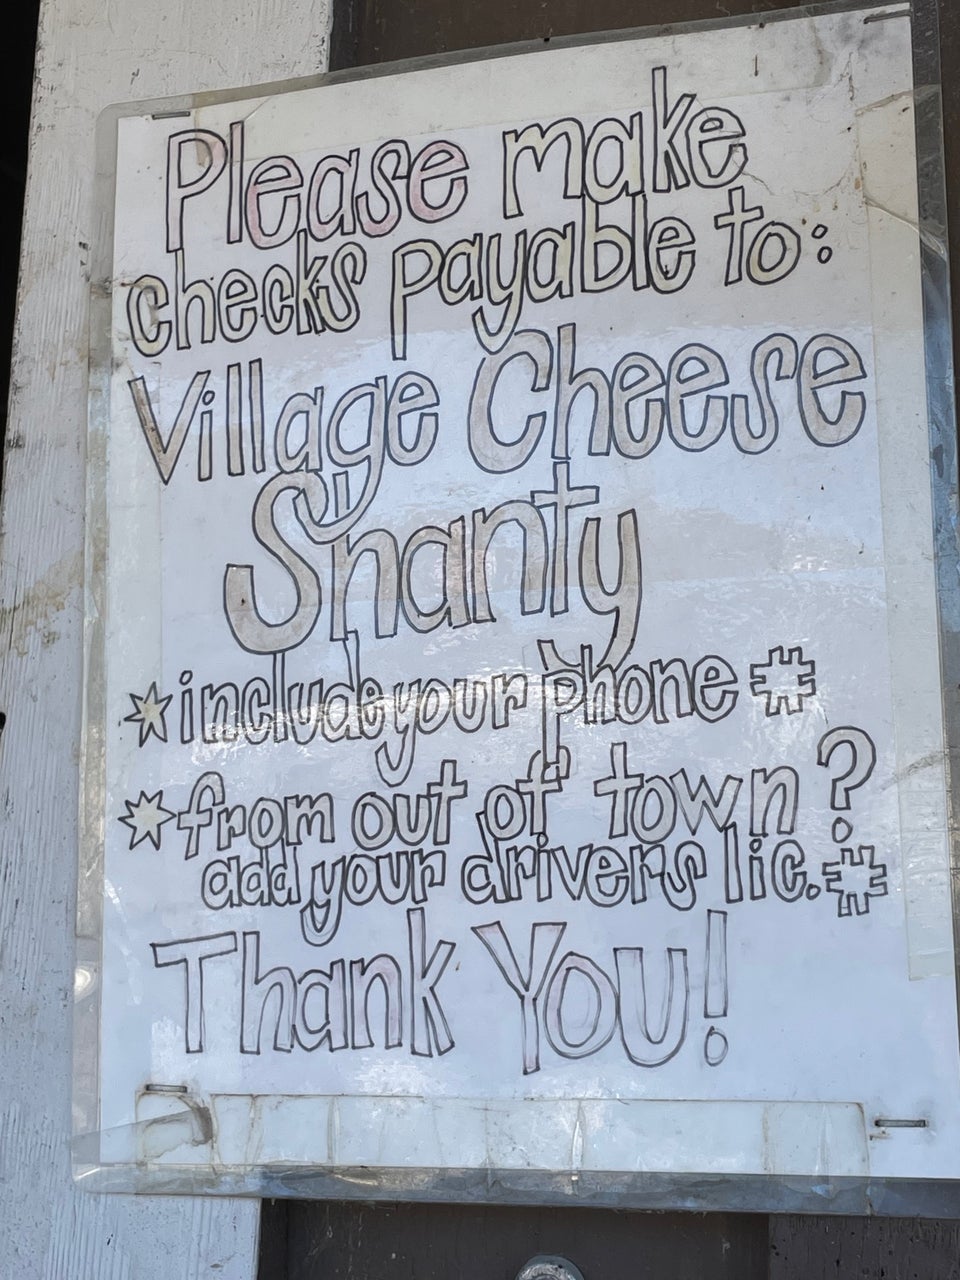 Please make
checks payable to:
Village Cheese
Shanty
*include your phone #
*from out of town?
add your drivers lic.#
Thank You!